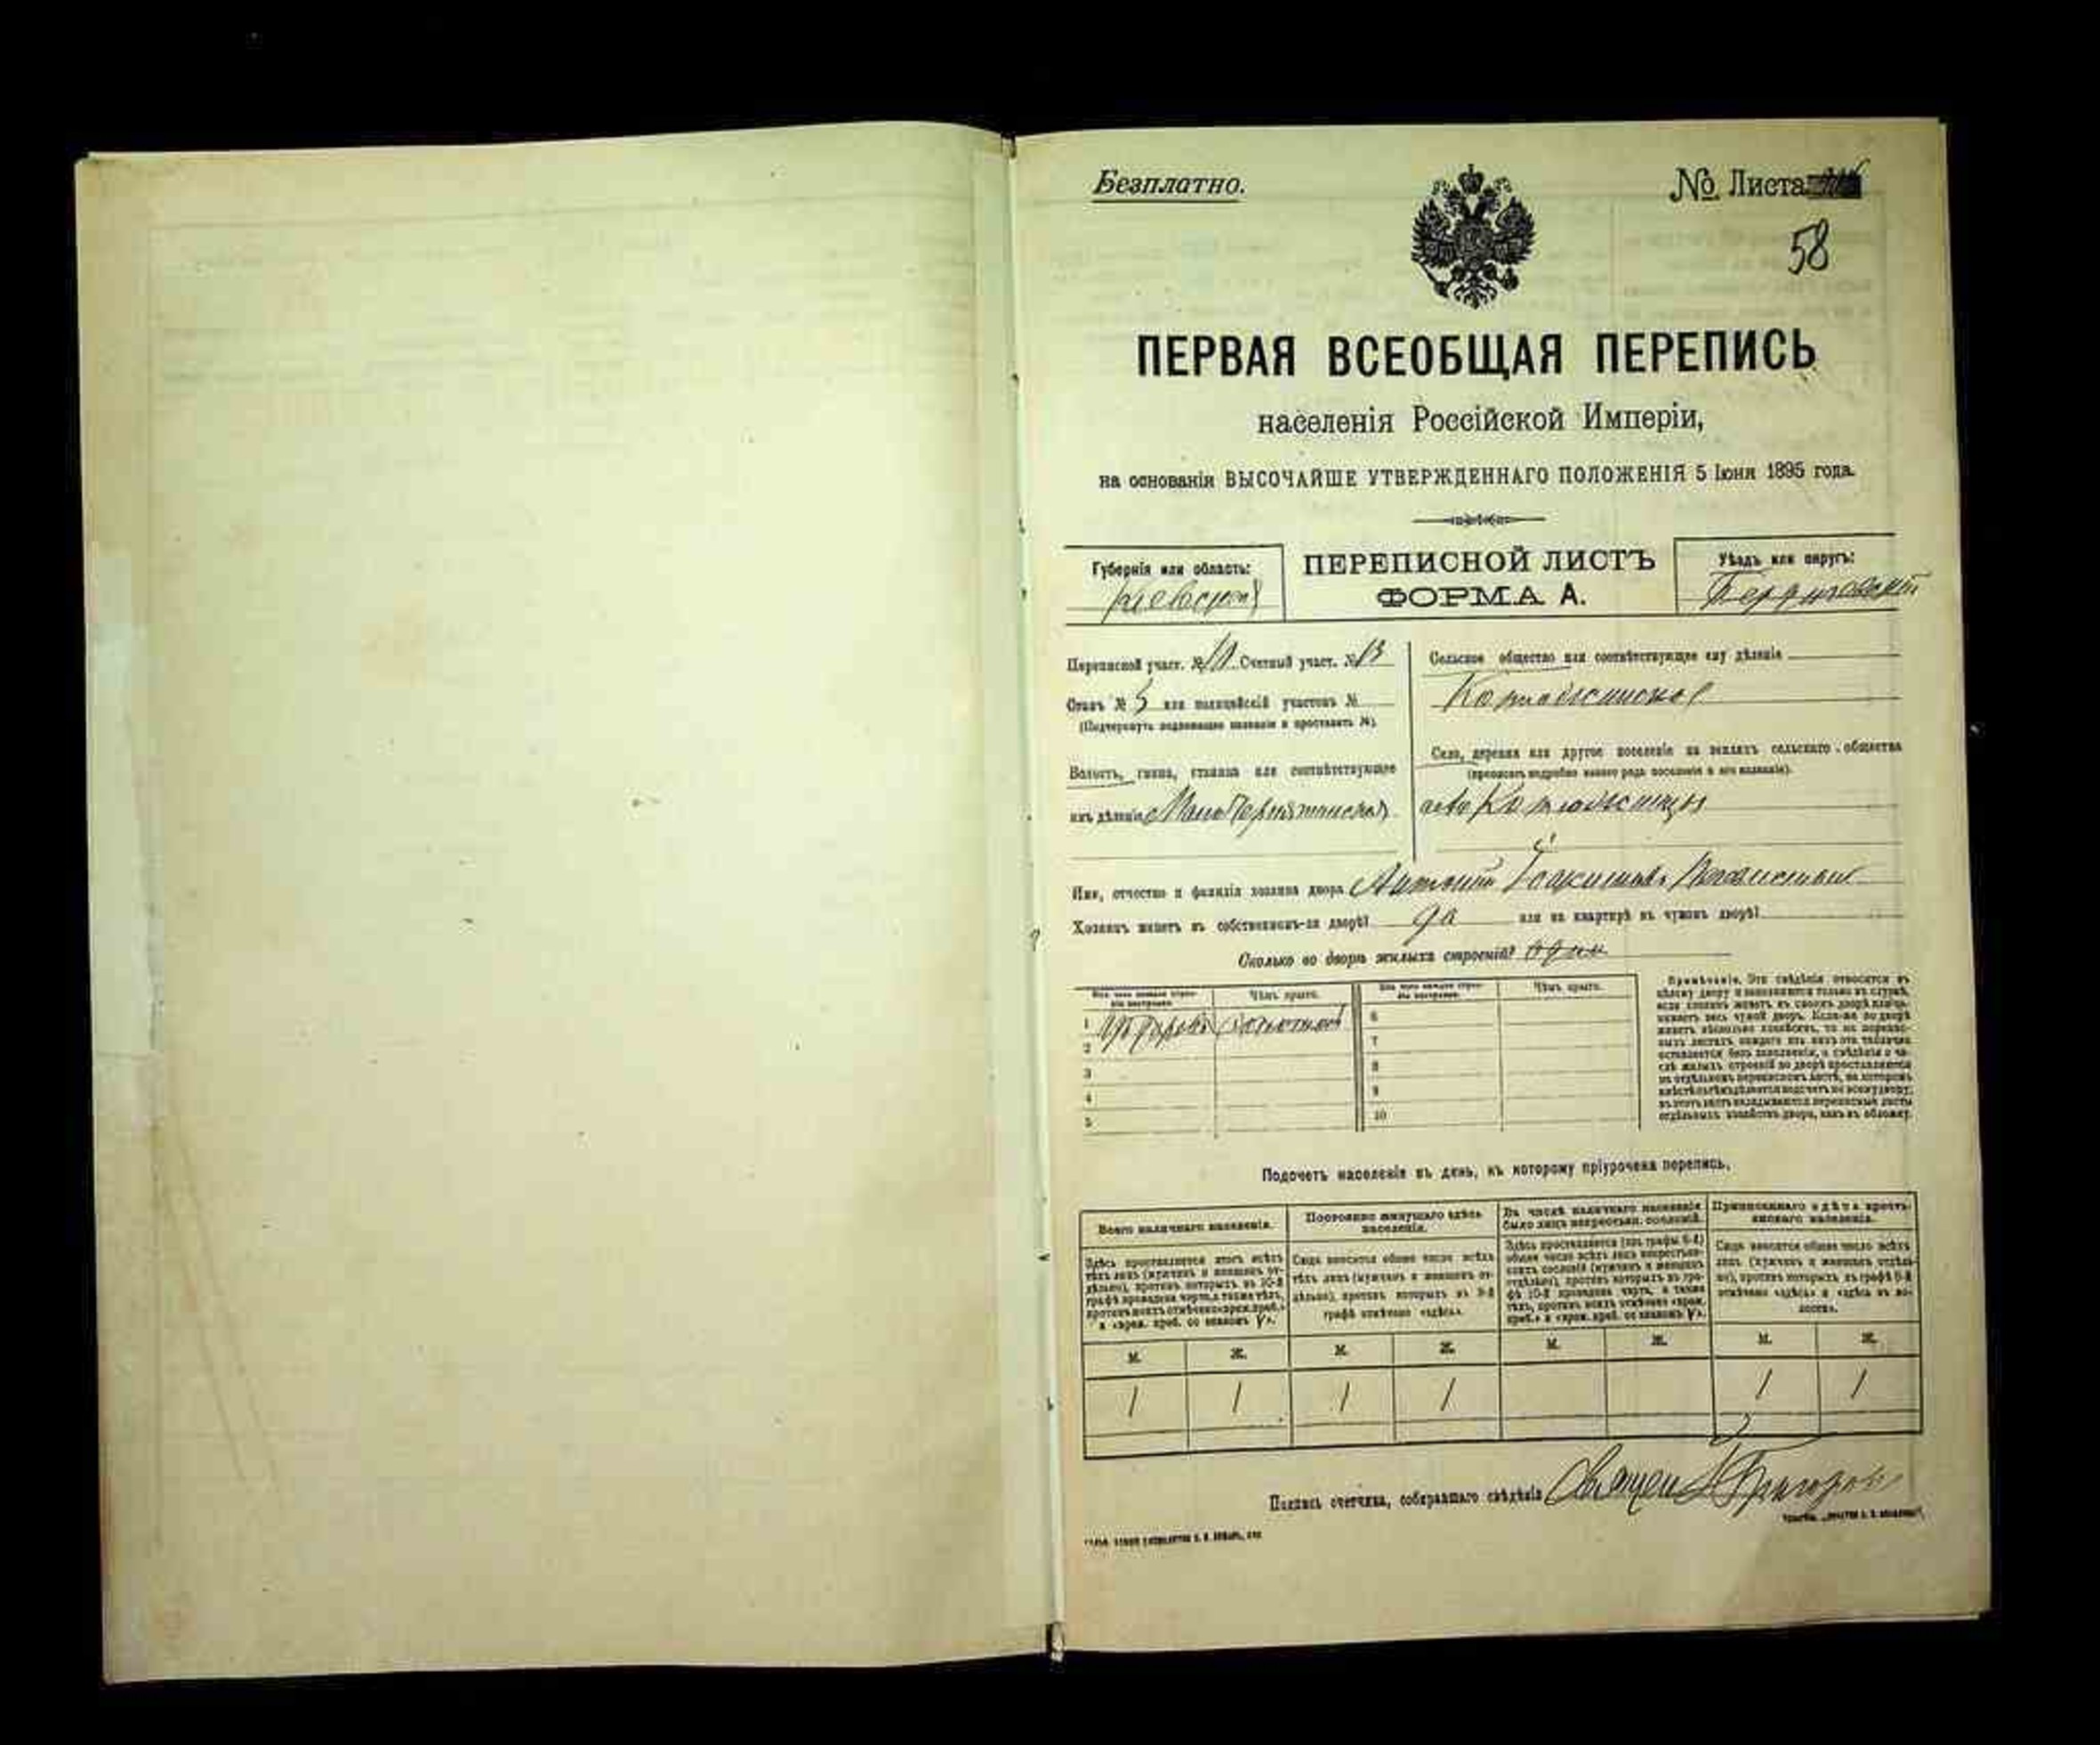 Безплатно.
№ Листа
58
ПЕРВАЯ ВСЕОБЩАЯ ПЕРЕПИСЬ
населенія Россійской Имперіи,
на основаніи ВЫСОЧАЙШЕ УТВЕРЖДЕННАГО ПОЛОЖЕНІЯ 5 Іюня 1895 года.
Губернія или область:
Кіевская
ПЕРЕПИСНОЙ ЛИСТЪ
ФОРМА А.
Уѣздъ или округъ:
Бердичевскій
Переписной участ. № 10 Счетный участ. № 13
Станъ № 5 или полицейскій участокъ №
(Подчеркнуть подлежащее названіе и проставить №).
Волость, гмина, станица или соотвѣтствующее
имъ дѣленіе
Сельское общество или соотвѣтствующее ему дѣленіе
Село, деревня или другое поселеніе на земляхъ сельскаго общества
(прописать подробно какого рода поселеніе и его названіе).
Имя, отчество и фамилія хозяина двора Антоній
Хозяинъ живетъ въ собственномъ-ли дворѣ? да или на квартирѣ въ чужомъ дворѣ?
Сколько во дворѣ жилыхъ строеній? одно
Изъ чего каждое строеніе построено. Чѣмъ крыто. Изъ чего каждое строеніе построено. Чѣмъ крыто.
1 Изъ дерева соломой 6
2 7
3 8
4 9
5 10
Примѣчаніе. Эти свѣдѣнія относятся къ
цѣлому двору и заполняются только въ случаѣ,
если хозяинъ живетъ въ своемъ дворѣ или за-
нимаетъ весь чужой дворъ. Если-же во дворѣ
живетъ нѣсколько хозяйствъ, то на перепис-
ныхъ листахъ каждаго изъ нихъ эта табличка
оставляется безъ заполненія, а свѣдѣнія о чи-
слѣ жилыхъ строеній во дворѣ проставляются
на отдѣльномъ переписномъ листѣ, на которомъ
вмѣстѣ съ тѣмъ дѣлается подсчетъ по всему двору;
въ этотъ листъ вкладываются переписные листы
отдѣльныхъ хозяйствъ двора, какъ въ обложку.
Подсчетъ населенія въ день, къ которому пріурочена перепись.
Всего наличнаго населенія.
Здѣсь проставляется итогъ всѣхъ
тѣхъ лицъ (мужчинъ и женщинъ от-
дѣльно), противъ которыхъ въ 10-й
графѣ проведена черта, а также тѣхъ,
противъ коихъ отмѣчено «врем. преб.»
и «врем. преб. со знакомъ V».
Постоянно живущаго здѣсь
населенія.
Сюда вносится общее число всѣхъ
тѣхъ лицъ (мужчинъ и женщинъ от-
дѣльно), противъ которыхъ въ 9-й
графѣ отмѣчено «здѣсь».
Въ числѣ наличнаго населенія
было лицъ некрестьян. сословій.
Здѣсь проставляется (изъ графы 6-й)
общее число всѣхъ лицъ некрестьян-
скихъ сословій (мужчинъ и женщинъ
отдѣльно), противъ которыхъ въ гра-
фѣ 10-й проведена черта, а также
тѣхъ, противъ коихъ отмѣчено «врем.
преб.» и «врем. преб. со знакомъ V».
Приписаннаго здѣсь кресть-
янскаго населенія.
Сюда вносится общее число всѣхъ
лицъ (мужчинъ и женщинъ отдѣль-
но), противъ которыхъ въ графѣ 8-й
отмѣчено «здѣсь» и «здѣсь въ во-
лости».
М. Ж. М. Ж. М. Ж. М. Ж.
1 1 1 1 1 1
Подпись счетчика, собиравшаго свѣдѣнія